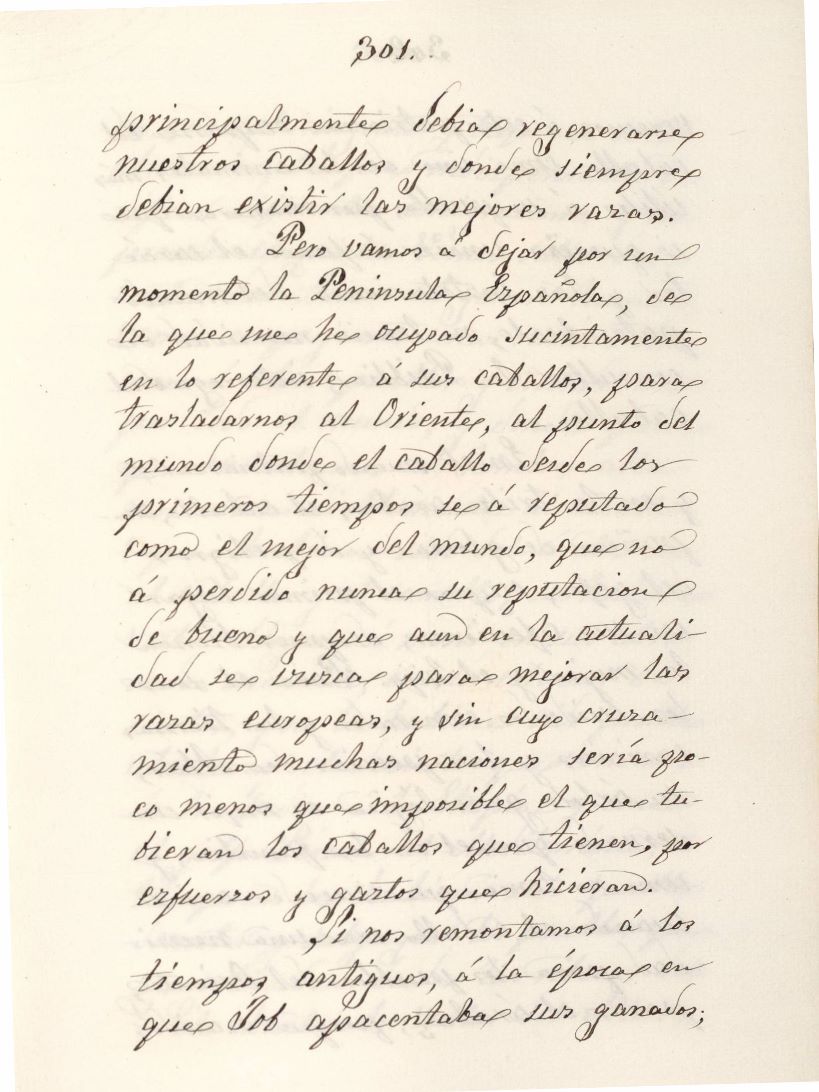 301.
principalmente debia regenerarse
nuestros caballos y donde siempre
debian existir las mejores razas.
Pero vamos á dejar por un
momento la Peninsula Española, de
la que me he ocupado sucintamente
en lo referente á sus caballos, para
trasladarnos al Oriente, al punto del
mundo donde el caballo desde los
primeros tiempos se á reputado
como el mejor del mundo, que no
á perdido nunca su reputacion
de bueno y que aun en la actuali-
dad se buzca para mejorar las
razas europeas, y sin cuyo cruza-
miento muchas naciones sería po-
co menos que imposible el que tu-
bieran los caballos que tienen, por
ezfuerzos y gaztos que hicieran.
Si nos remontamos á los
tiempos antiguos, á la época en
que Job apacentaba sus ganados;